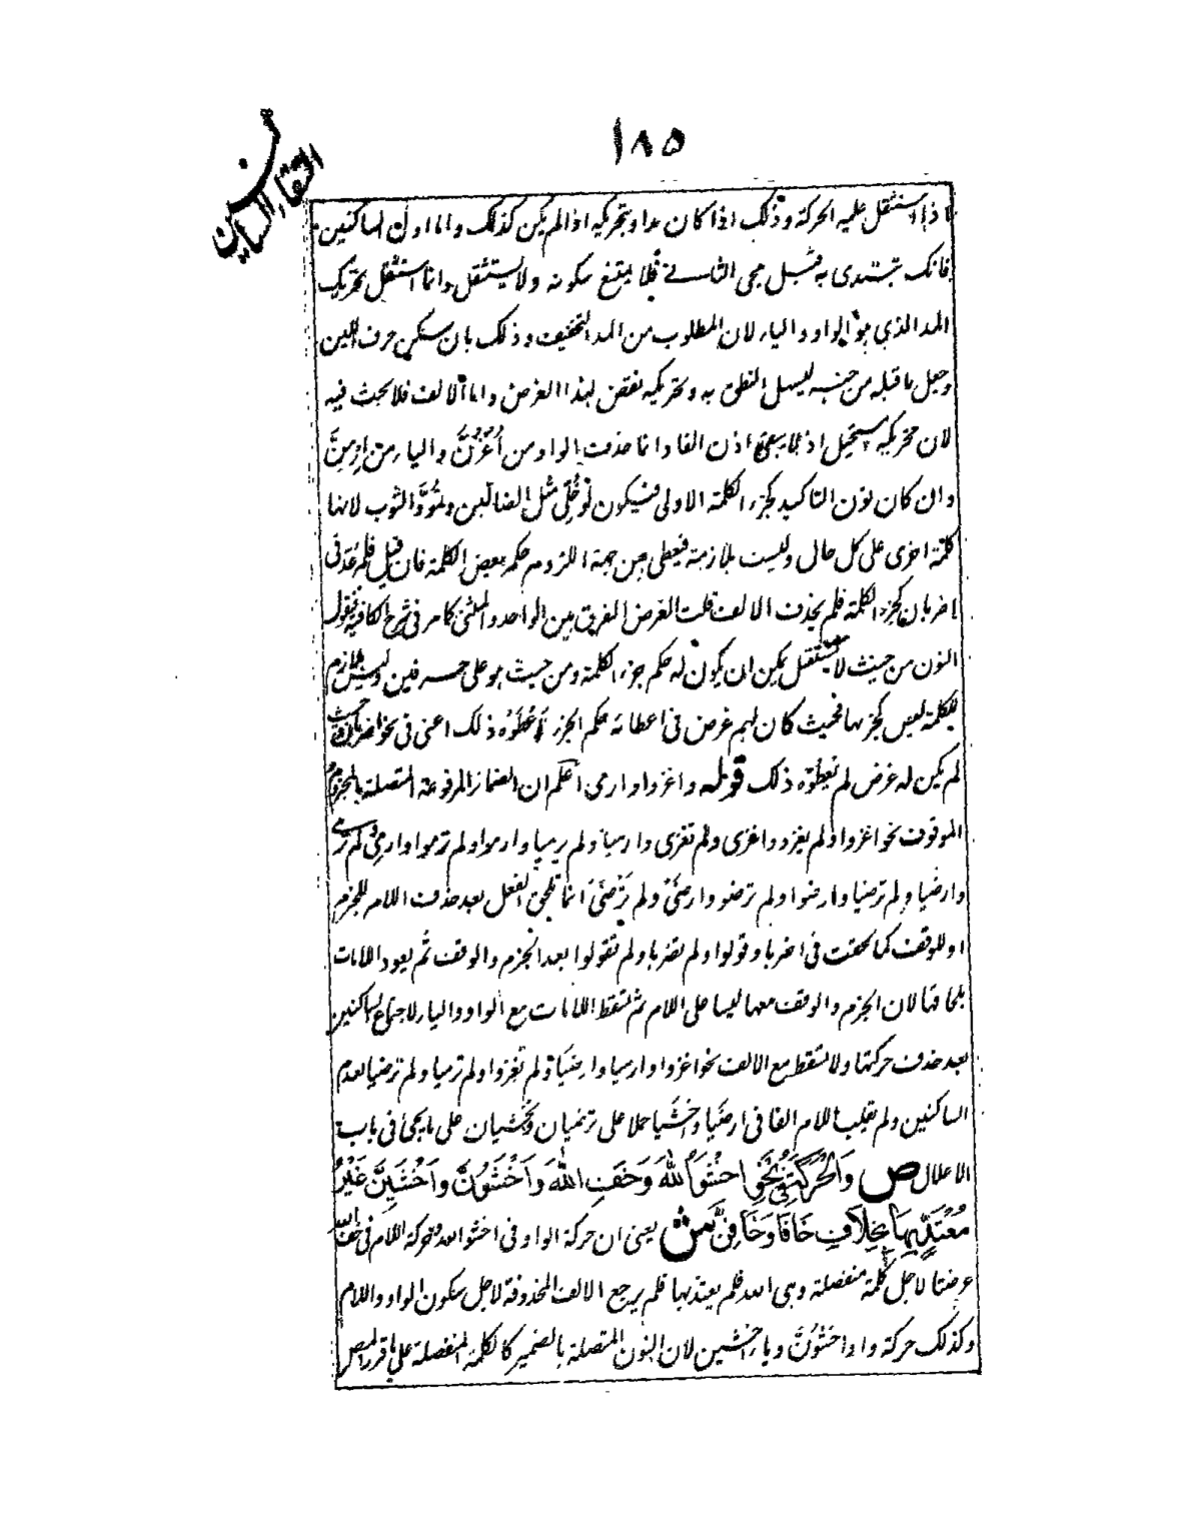 ١٨٥
التقاء الساكنين
اذا استثقل عليه الحركة وذلك اذا كان مدا وتحريكه اذا لم يكن كذلك واما اول الساكنين
فانك تبتدى به قبل مجى الثانى فلا يمتنع سكونه ولا يستثقل وانما استثقل تحريك
المد الذي هو الواو والياء لان المطلوب من المد التخفيف وذلك بان سكن حرف اللين
وجعل ما قبله من جنسه ليسهل النطق به وتحريكه نقض لهذا الغرض واما الالف فلا بحث فيه
لان تحريكه مستحيل اذ لا يبقى اذن الفا وانما حذفت الواو من اُغْزُنَّ والياء من اِرْمِنَّ
وان كان نون التاكيد كجزء الكلمة الاولى فيكون نحو مثل الضالّين وتُمُودَّ الثوب لانها
كلمة اخرى على كل حال وليست بلازمة فيعطى من جهة اللزوم حكم بعض الكلمة فان قيل فلم عُدّ فى
اضربانّ كجزء الكلمة فلم يحذف الالف قلت الغرض الفرق بين الواحد والمثنى كما مر فى شرح الكافية فنقول
النون من حيث لا يستقل يمكن ان يكون له حكم جزء الكلمة ومن حيث هو على حرفين وليس بلازم
للكلمة ليس كجزءها فحيث كان لهم غرض فى اعطائه حكم الجزء أَعْطَوْه ذلك اعنى فى نحو اضربانّ وحيث
لم يكن له غرض لم يعطوه ذلك قوله واغزوا وارمى اعلم ان الضمائر المرفوعة المتصلة بالمجزوم
الموقوف نحو اغزوا ولم يغزوا واغزى ولم تغزى وارميا ولم يرميا وارموا ولم ترموا وارمى ولم ترمى
وارضيا ولم ترضيا وارضوا ولم ترضو وارضَىْ ولم تَرْضَىْ انما تلحق الفعل بعد حذف اللام للجزم
او للوقف كما لحقت فى اضربا وقولوا ولم يضربا ولم تقولوا بعد الجزم والوقف ثم يعود اللامات
بلحاقها لان الجزم والوقف معها ليسا على اللام ثم تسقط اللامات مع الواو والياء لاجتماع الساكنين
بعد حذف حركتها ولا تسقط مع الالف نحو اغزوا وارميا وارضَيا ولم تغزوا ولم ترميا ولم ترضيا لعدم
الساكنين ولم يقلب اللام الفا فى ارضَيا واخشَيا حملا على ترضيان وتخشيان على ما يجئ فى باب
الاعلال ص وَالْحَرَكَةُ فِي نَحْوِ اخْشَوُا اللهَ وَخَفِ اللهَ وَاخْشَوُنَّ وَاخْشَيِنَّ غَيْرُ
مُعْتَدٍّ بِهَا بِخِلَافِ خَافَا وَخَافَنَّ ش يعنى ان حركة الواو فى اخشوا الله وحركة اللام فى خف الله
عرضتا لاجل كلمة منفصلة وهى الله فلم يعتد بها فلم يرجع الالف المحذوفة لاجل سكون الواو واللام
وكذلك حركة واو اخشَوُنَّ وياء اخشَيِنَّ لان النون المتصلة بالضمير كالكلمة المنفصلة على ما قرر المص